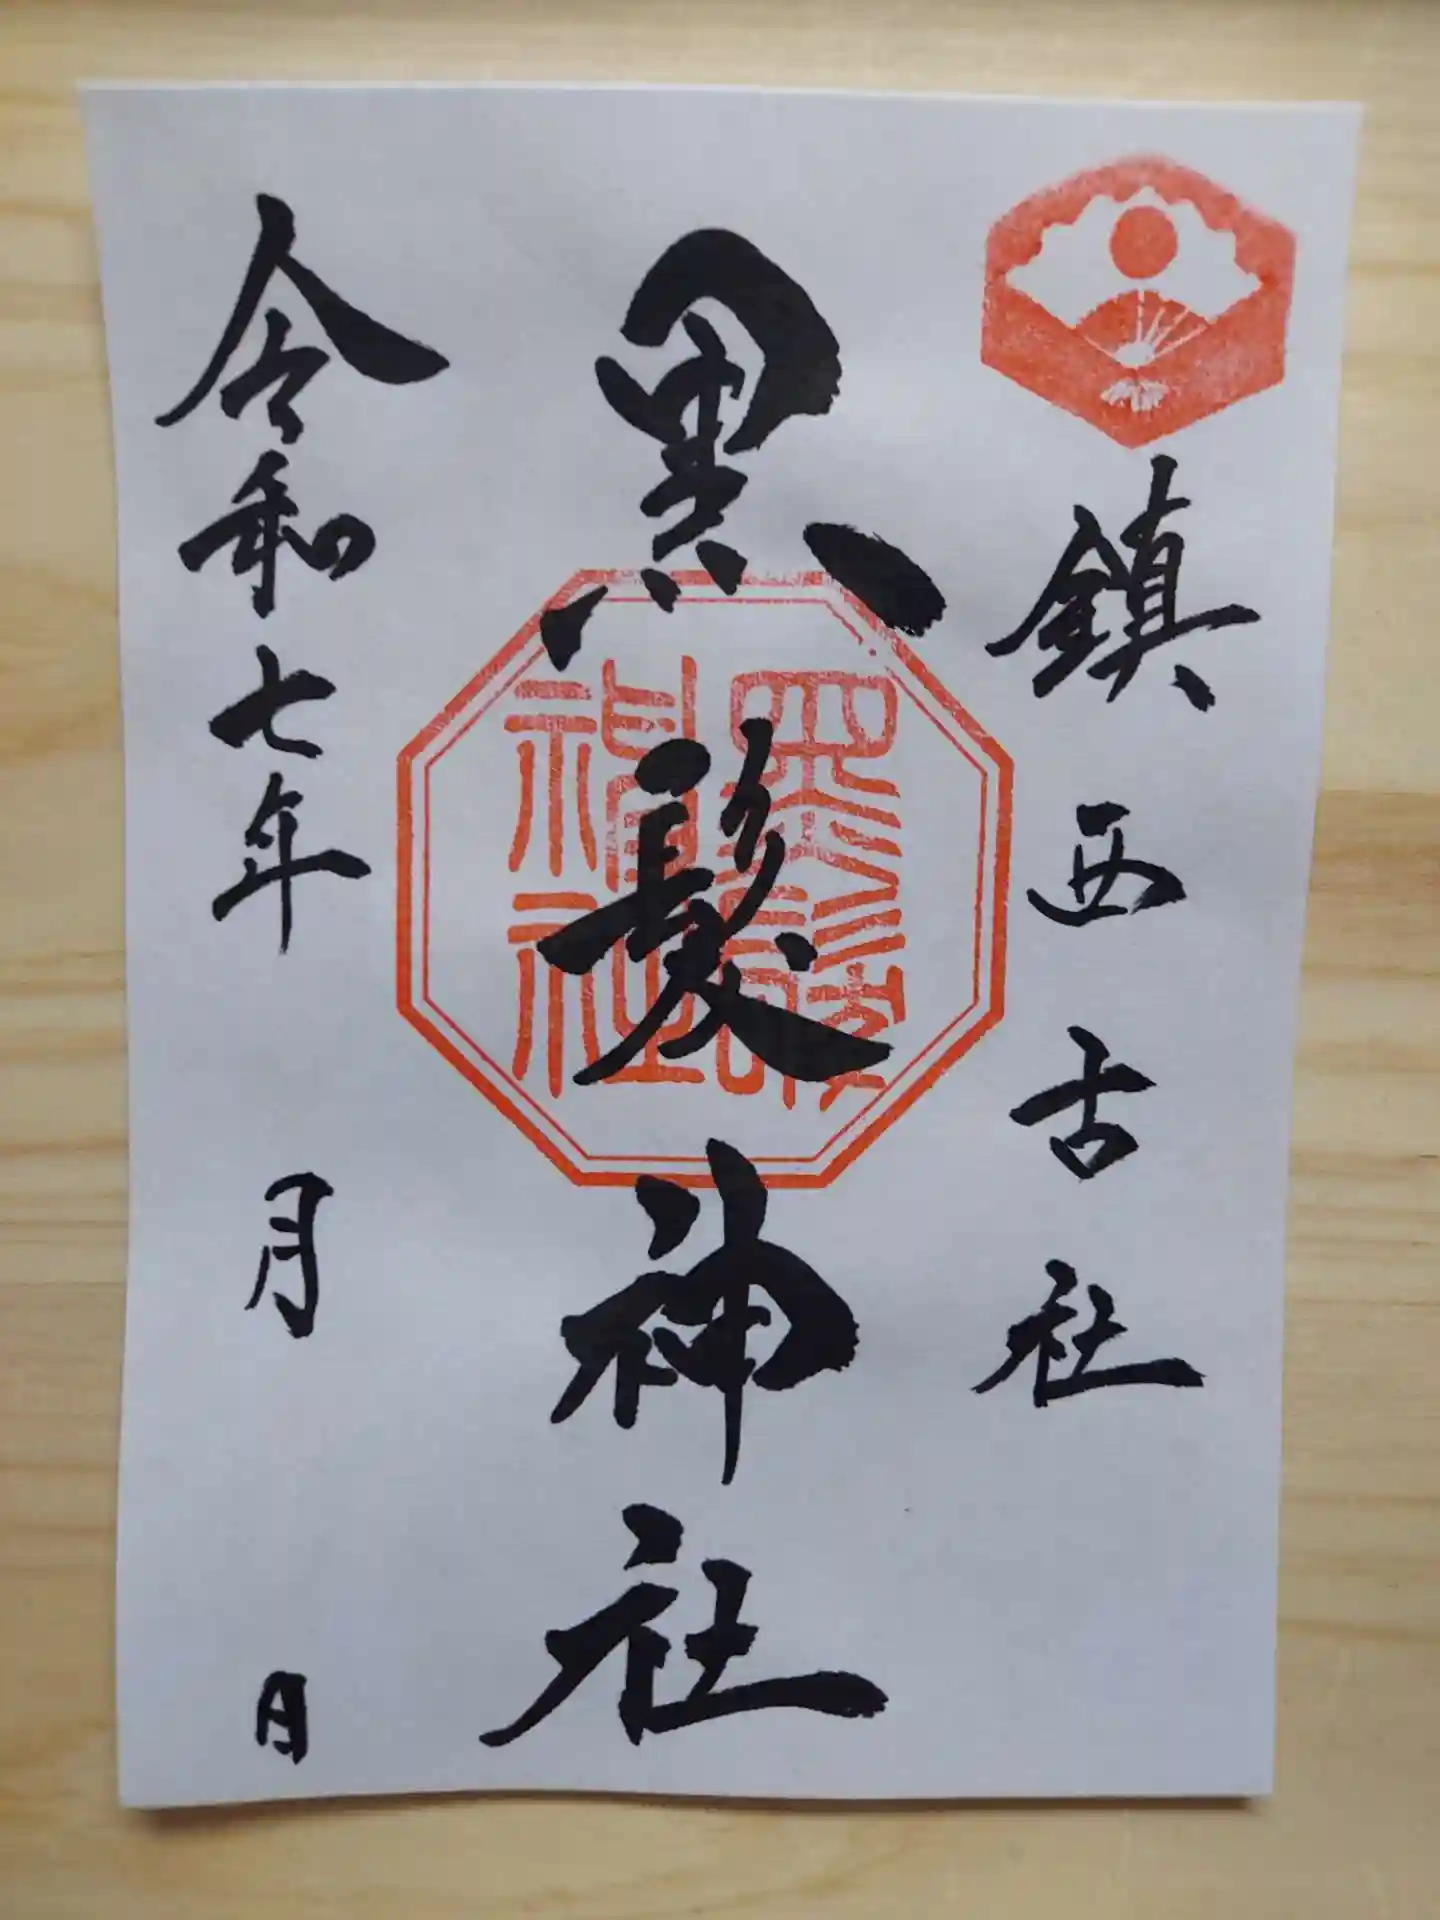 鎮西古社
黒髪神社
黒髪神社
令和七年 月 日